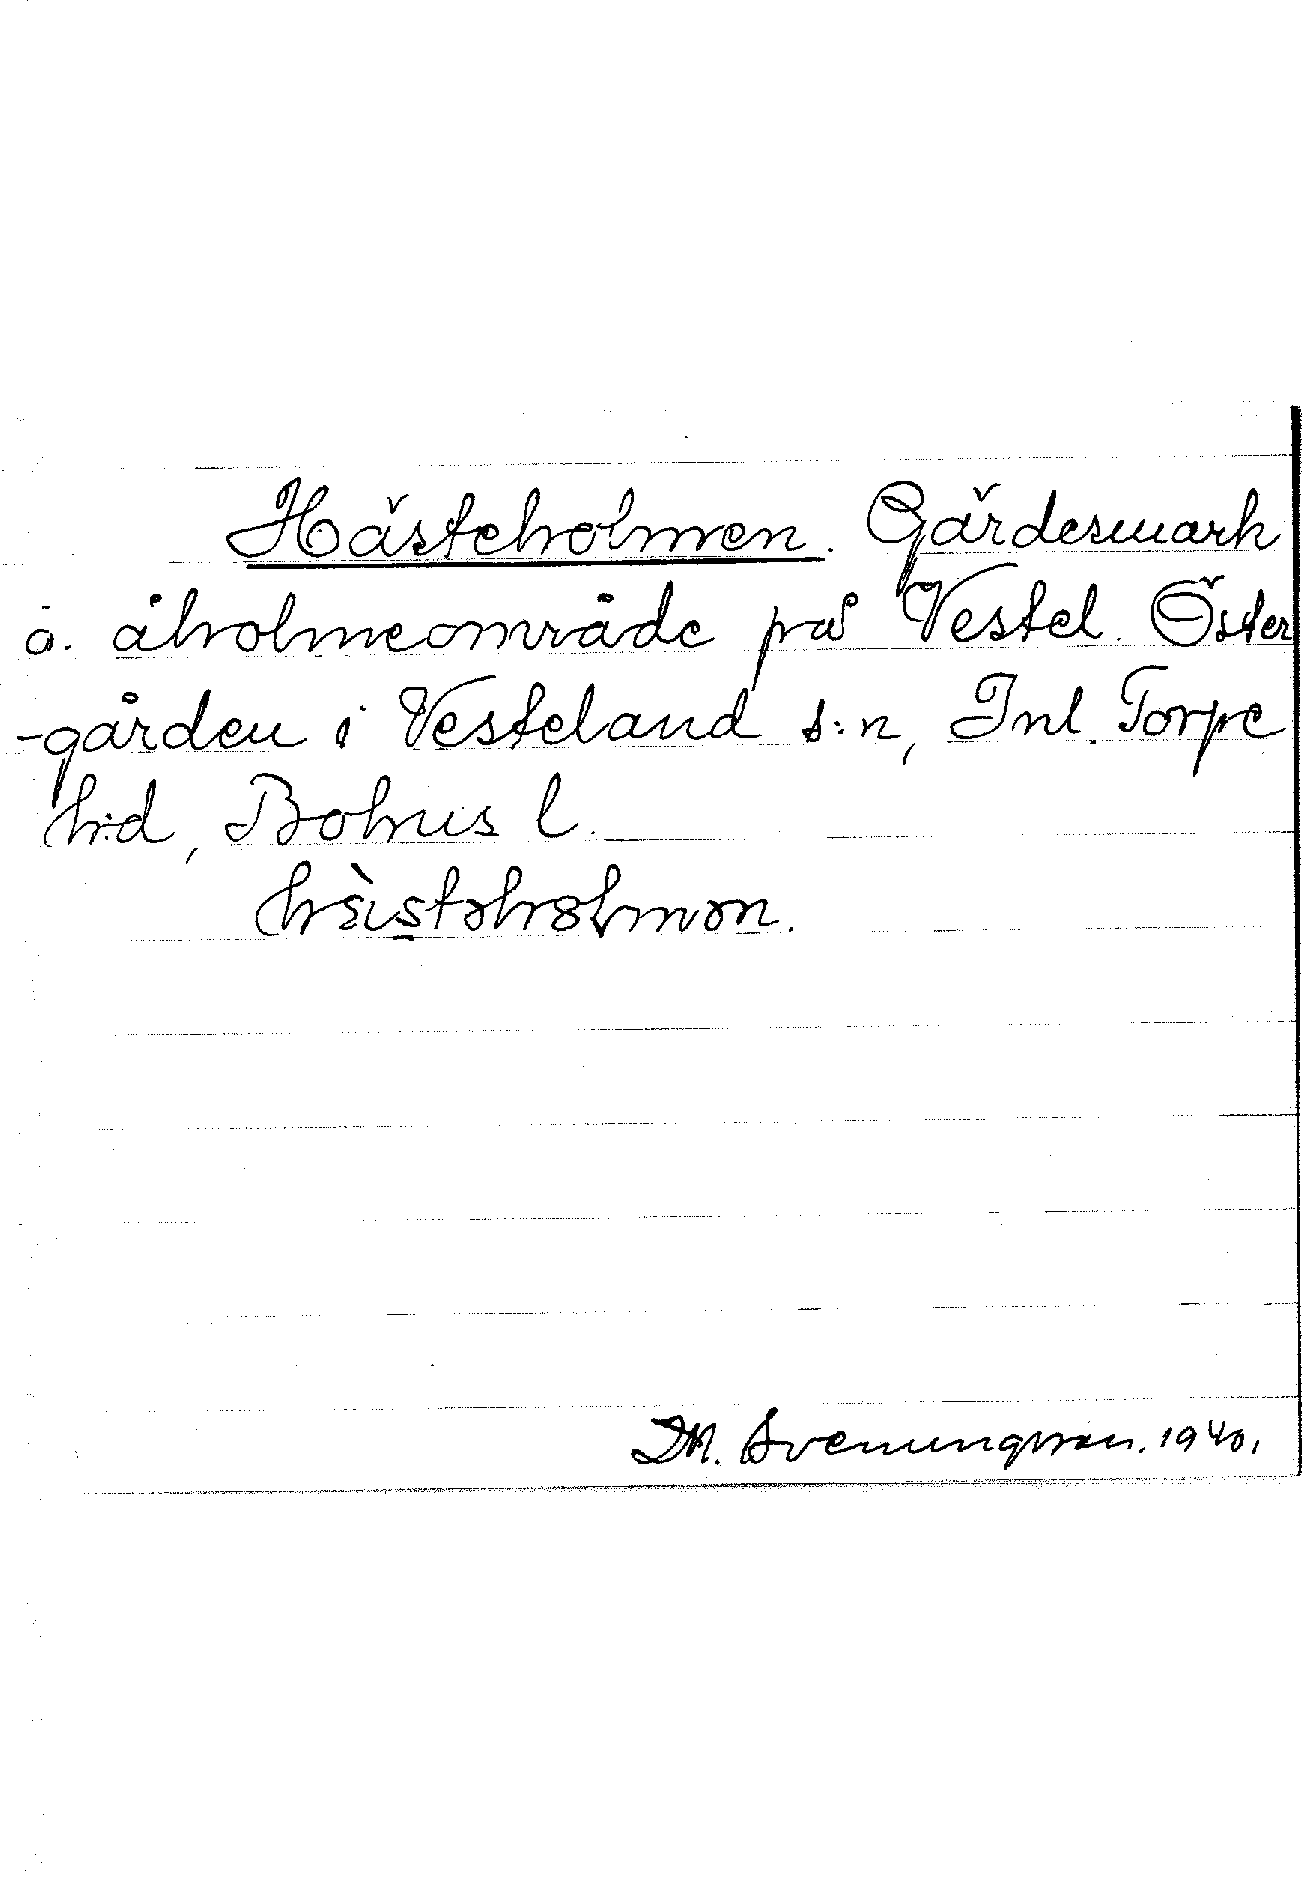 Hästeholmen. Gärdesmark
o. åholmeområde på Vestel. Öster
-gården i Vesteland s:n, Inl. Torpe
h:d, Bohus l.
hästəhɷlmən.
DM. Svenungsson. 1940.